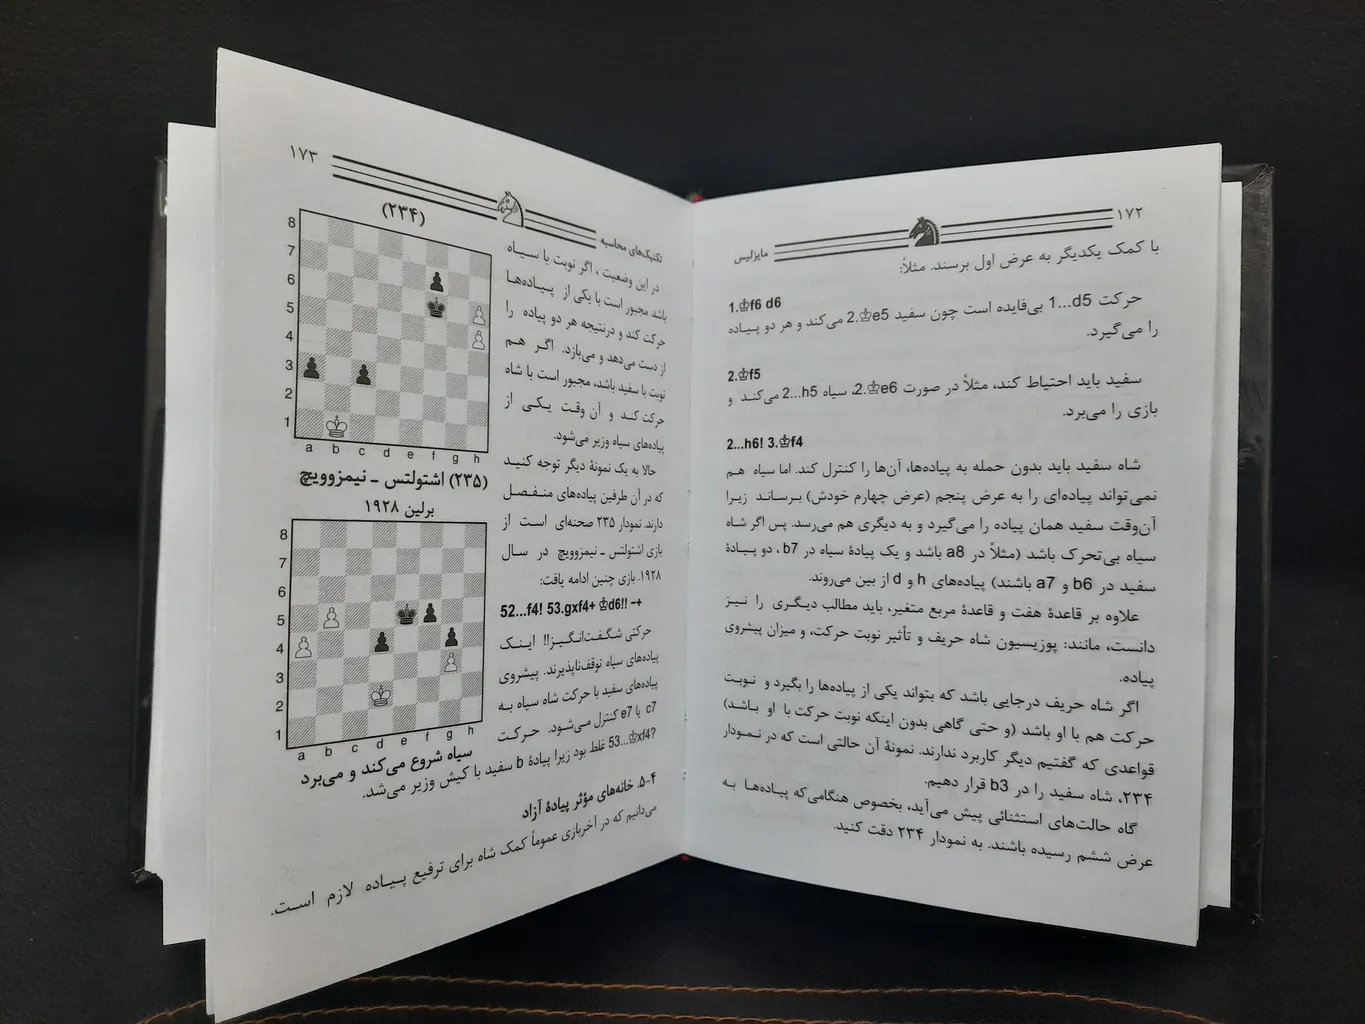 ۱۷۲
مایزلیس
با کمک یکدیگر به عرض اول برسند. مثلاً:
1.♔f6 d6
حرکت 1...d5 بی‌فایده است چون سفید 2.♔e5 می‌کند و هر دو پیاده
را می‌گیرد.
2.♔f5
سفید باید احتیاط کند، مثلاً در صورت 2.♔e6، سیاه 2...h5 می‌کند و
بازی را می‌برد.
2...h6! 3.♔f4
شاه سفید باید بدون حمله به پیاده‌ها، آن‌ها را کنترل کند. اما سیاه هم
نمی‌تواند پیاده‌ای را به عرض پنجم (عرض چهارم خودش) برساند زیرا
آن‌وقت سفید همان پیاده را می‌گیرد و به دیگری هم می‌رسد. پس اگر شاه
سیاه بی‌تحرک باشد (مثلاً در a8 باشد و یک پیادهٔ سیاه در b7، دو پیادهٔ
سفید در b6 و a7 باشند) پیاده‌های h و d از بین می‌روند.
علاوه بر قاعدهٔ هفت و قاعدهٔ مربع متغیر، باید مطالب دیگری را نیز
دانست، مانند: پوزیسیون شاه حریف و تأثیر نوبت حرکت، و میزان پیشروی
پیاده.
اگر شاه حریف درجایی باشد که بتواند یکی از پیاده‌ها را بگیرد و نوبت
حرکت هم با او باشد (و حتی گاهی بدون اینکه نوبت حرکت با او باشد)
قواعدی که گفتیم دیگر کاربرد ندارند. نمونهٔ آن حالتی است که در نمودار
۲۳۴، شاه سفید را در b3 قرار دهیم.
گاه حالت‌های استثنائی پیش می‌آید، بخصوص هنگامی‌که پیاده‌ها به
عرض ششم رسیده باشند. به نمودار ۲۳۴ دقت کنید.
۱۷۳
تکنیک‌های محاسبه
در این وضعیت، اگر نوبت با سیاه
باشد مجبور است با یکی از پیاده‌ها
حرکت کند و درنتیجه هر دو پیاده را
از دست می‌دهد و می‌بازد. اگر هم
نوبت با سفید باشد، مجبور است با شاه
حرکت کند و آن وقت یکی از
پیاده‌های سیاه وزیر می‌شود.
حالا به یک نمونهٔ دیگر توجه کنید
که در آن طرفین پیاده‌های منفصل
دارند. نمودار ۲۳۵ صحنه‌ای است از
بازی اشتولتس ـ نیمزوویچ در سال
۱۹۲۸. بازی چنین ادامه یافت:
52...f4! 53.gxf4+ ♔d6!! –+
حرکتی شگفت‌انگیز!! اینک
پیاده‌های سیاه توقف‌ناپذیرند. پیشروی
پیاده‌های سفید با حرکت شاه سیاه به
c7 یا e7 کنترل می‌شود. حرکت
53...♔xf4? غلط بود زیرا پیادهٔ b سفید با کیش وزیر می‌شد.
(۲۳۴)
8
7
6
5
4
3
2
1
a b c d e f g h
(۲۳۵) اشتولتس ـ نیمزوویچ
برلین ۱۹۲۸
8
7
6
5
4
3
2
1
a b c d e f g h
سیاه شروع می‌کند و می‌برد
۵-۴. خانه‌های مؤثر پیادهٔ آزاد
می‌دانیم که در آخربازی عموماً کمک شاه برای ترفیع پیاده لازم است.